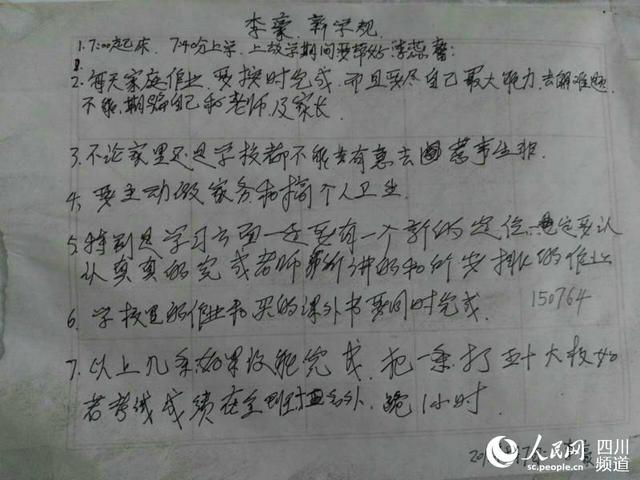 李豪 新家规
1. 7:00起床. 7:40分上学. 上放学期间要带好李蕊馨:
2. 每天家庭作业, 要按时完成, 而且要尽自己最大能力, 去解难题
不能, 欺骗自己和老师, 及家长.
3. 不论家里还是学校都不能去有意去 惹事生非.
4. 要主动做家务和搞个人卫生.
5. 特别是学习方面一定要有一个新的定位, 一定要认
认真真的完成老师所讲的和所安排的作业
6. 学校里的作业和买的课外书要同时完成. 150764
7. 以上几条如果没能完成, 把一条打五十大板如
若考试成绩在全班 名外. 跪1小时.
人民网 四川
sc.people.com.cn 频道